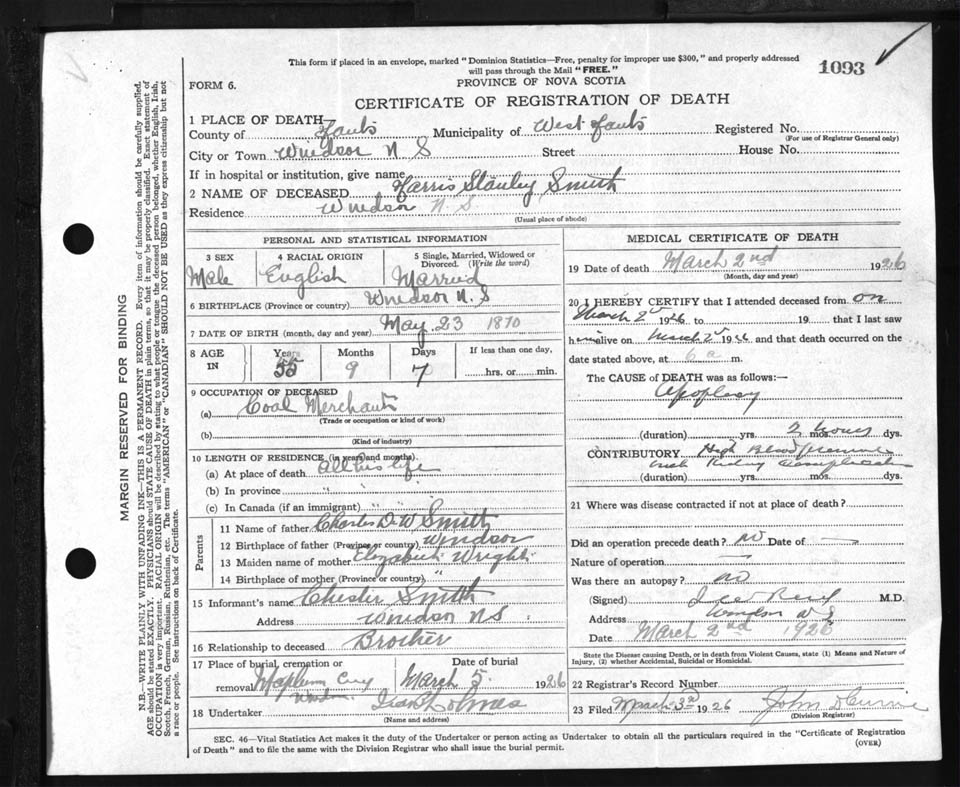 This form if placed in an envelope, marked "Dominion Statistics—Free, penalty for improper use $300," and properly addressed
will pass through the Mail "FREE."
1093
FORM 6.
PROVINCE OF NOVA SCOTIA
CERTIFICATE OF REGISTRATION OF DEATH
1 PLACE OF DEATH
County of Hants Municipality of West Hants Registered No.
(For use of Registrar General only)
City or Town Windsor N S Street House No.
If in hospital or institution, give name
2 NAME OF DECEASED Harris Stanley Smith
Residence Windsor N. S.
(Usual place of abode)
PERSONAL AND STATISTICAL INFORMATION
3 SEX 4 RACIAL ORIGIN 5 Single, Married, Widowed or
Divorced. (Write the word)
Male English Married
6 BIRTHPLACE (Province or country) Windsor N. S
7 DATE OF BIRTH (month, day and year) May 23 1870
8 AGE IN Years Months Days If less than one day,
55 9 7 hrs. or min.
9 OCCUPATION OF DECEASED
(a) Coal Merchant
(Trade or occupation or kind of work)
(b)
(Kind of industry)
10 LENGTH OF RESIDENCE (in years and months).
(a) At place of death all his life
(b) In province " "
(c) In Canada (if an immigrant) " "
Parents
11 Name of father Charles D. W Smith
12 Birthplace of father (Province or country) Windsor
13 Maiden name of mother Elizabeth Wright
14 Birthplace of mother (Province or country) "
15 Informant's name Chester Smith
Address Windsor N S.
16 Relationship to deceased Brother
17 Place of burial, cremation or Date of burial
removal March 5. 1926
Windsor
18 Undertaker
(Name and address)
MEDICAL CERTIFICATE OF DEATH
19 Date of death March 2nd 1926
(Month, day and year)
20 I HEREBY CERTIFY that I attended deceased from on
March 2 1926 to 19 that I last saw
him alive on March 2 1926 and that death occurred on the
date stated above, at 6 a m.
The CAUSE of DEATH was as follows:—
Apoplexy
2 hours
(duration) yrs. mos. dys.
CONTRIBUTORY High Blood pressure
with Kidney
(duration) yrs. mos. dys.
21 Where was disease contracted if not at place of death?
Did an operation precede death? no Date of —
Nature of operation —
Was there an autopsy? no
(Signed) Reid M.D.
Address Windsor N S
Date March 2nd 1926
State the Disease causing Death, or in Death from Violent Causes, state (1) Means and Nature of
Injury, (2) whether Accidental, Suicidal or Homicidal.
22 Registrar's Record Number
23 Filed March 3rd 1926 John D Currie
(Division Registrar)
SEC. 46—Vital Statistics Act makes it the duty of the Undertaker or person acting as Undertaker to obtain all the particulars required in the "Certificate of Registration
of Death" and to file the same with the Division Registrar who shall issue the burial permit.
(OVER)
MARGIN RESERVED FOR BINDING
N.B.—WRITE PLAINLY WITH UNFADING INK—THIS IS A PERMANENT RECORD. Every item of information should be carefully supplied.
AGE should be stated EXACTLY. PHYSICIANS should STATE CAUSE OF DEATH in plain terms, so that it may be properly classified. Exact statement of
OCCUPATION is very important. RACIAL ORIGIN will be described by stating to what people or tongue the deceased person belonged, whether English, Irish,
Scotch, French, German, Russian, Ruthenian, etc. The terms "AMERICAN" or "CANADIAN" SHOULD NOT BE USED as they express citizenship but not
a race or people. See instructions on back of Certificate.